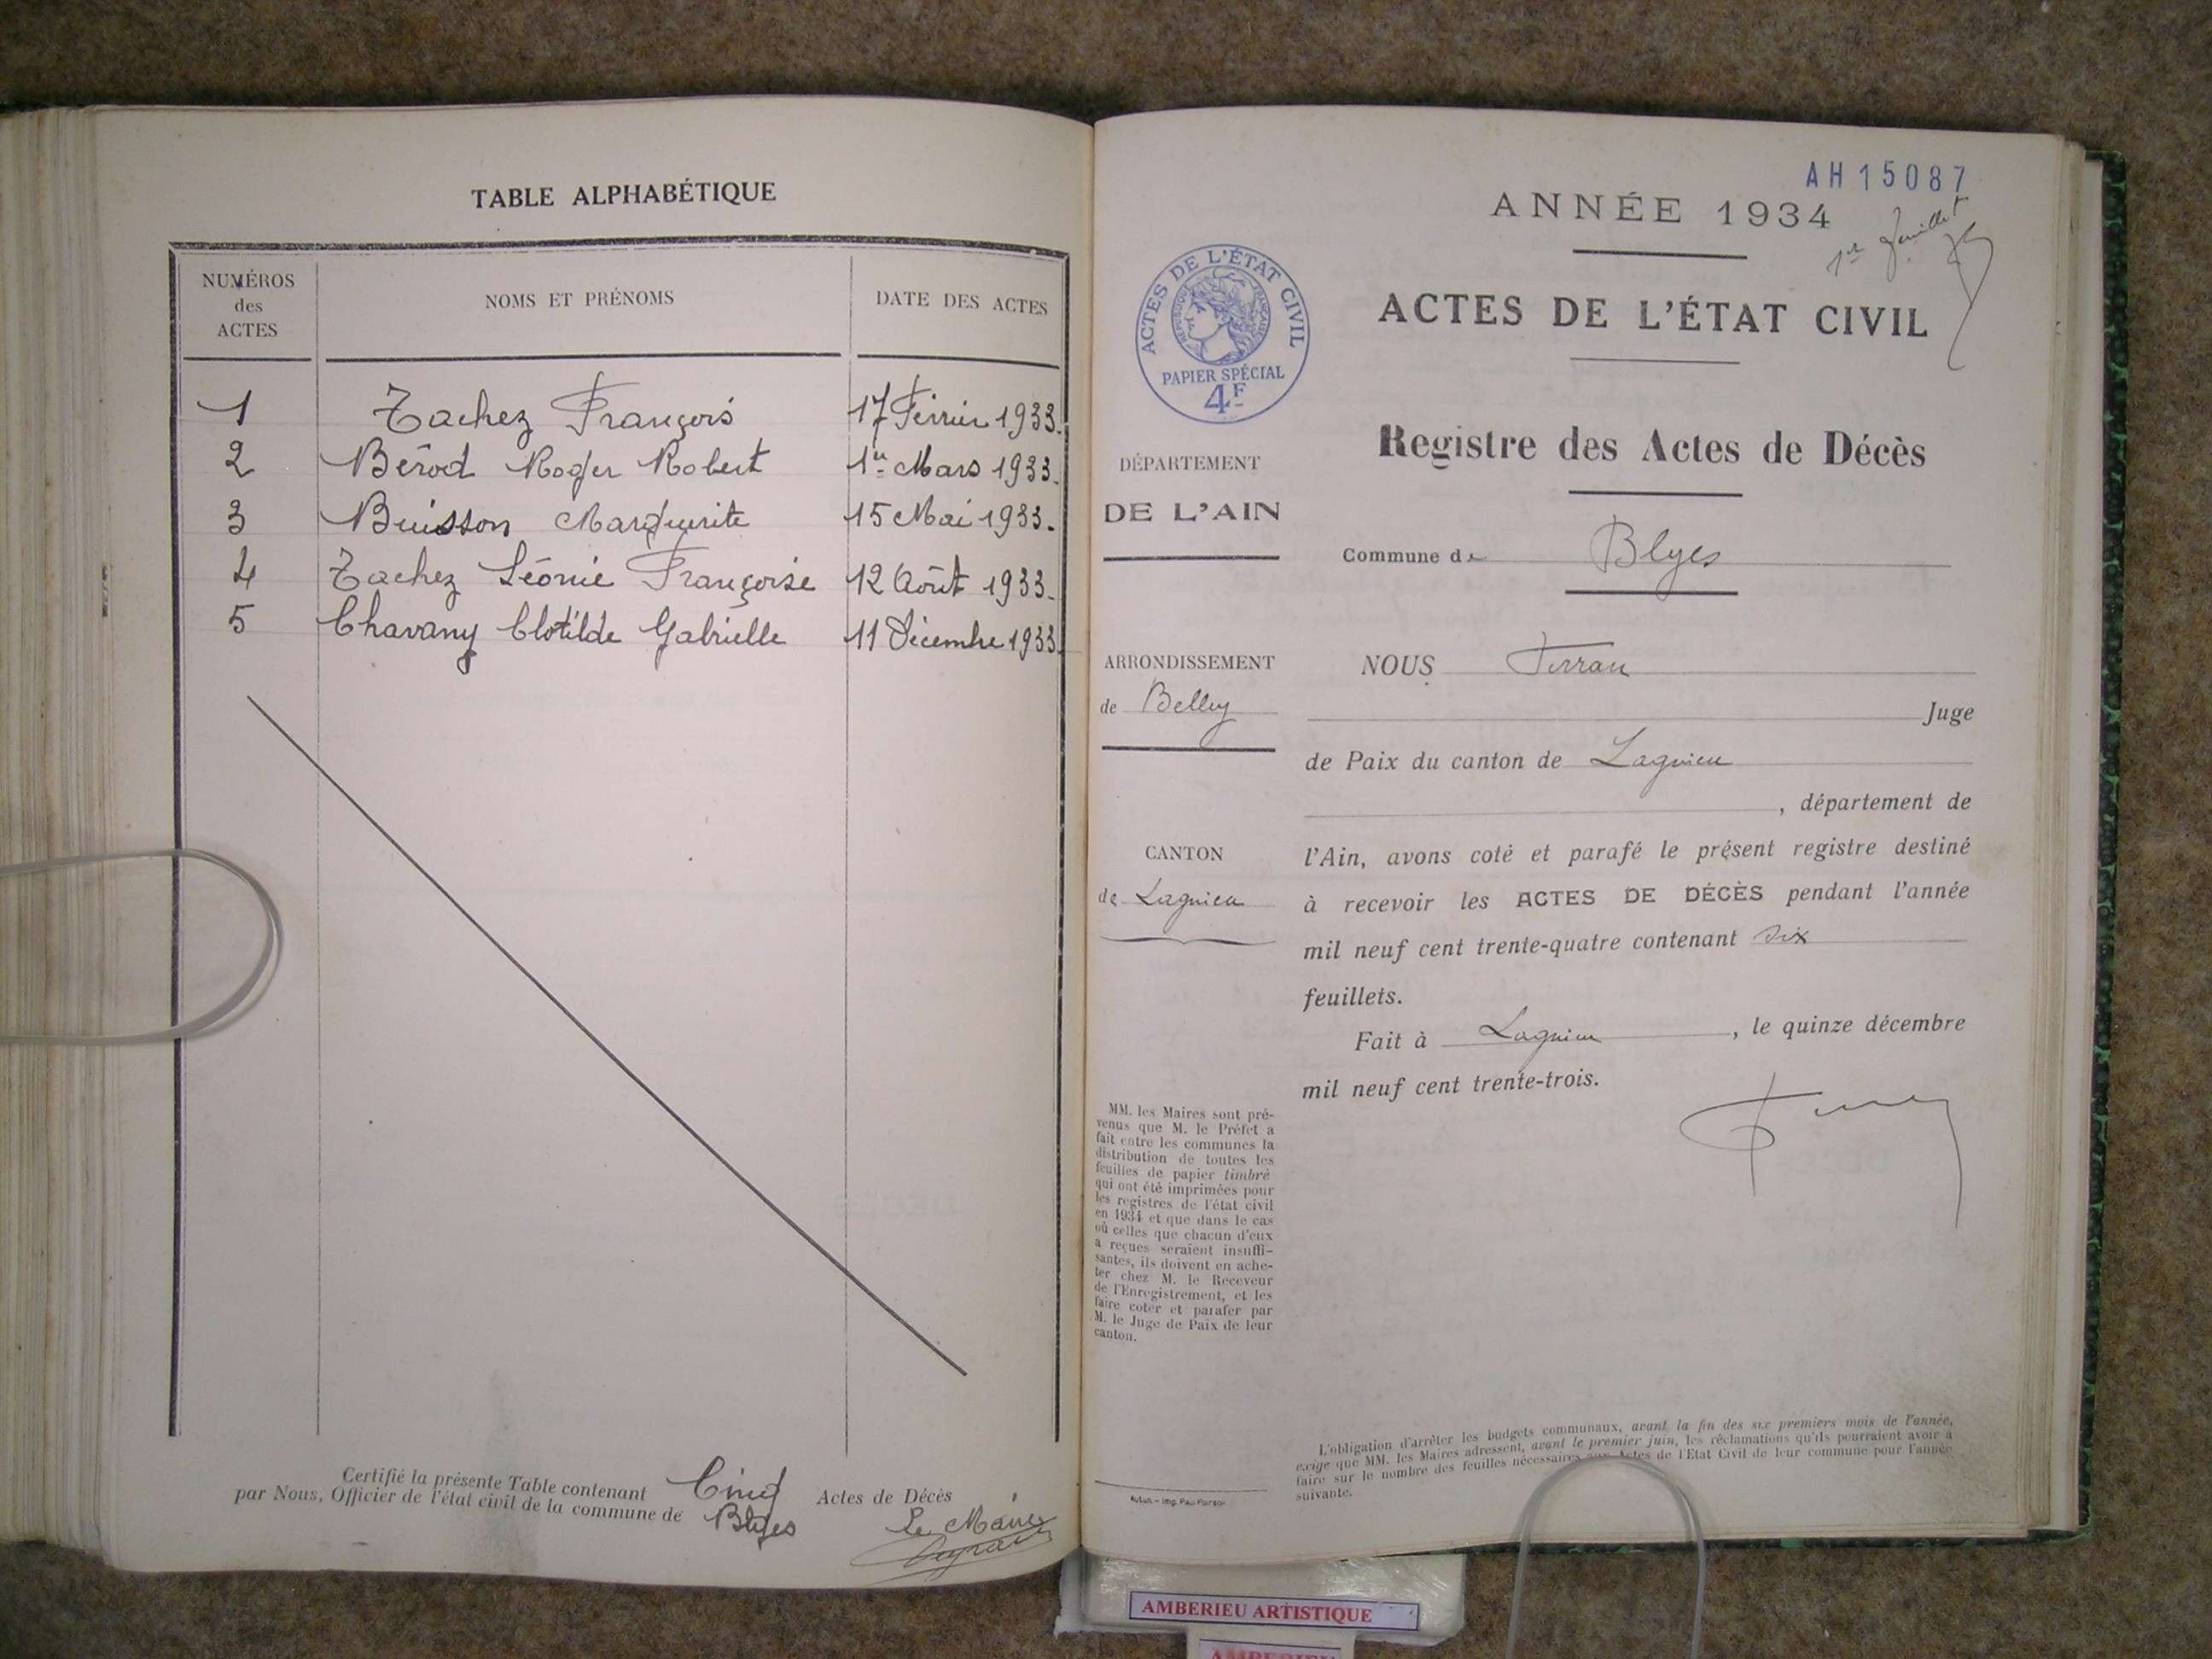 TABLE ALPHABÉTIQUE
NUMÉROS
des
ACTES
NOMS ET PRÉNOMS
DATE DES ACTES
1 Tachez François 17 Février 1933.
2 Bérod Roger Robert 1er Mars 1933.
3 Buisson Marguerite 15 Mai 1933.
4 Tachez Léonie Françoise 12 Août 1933.
5 Chavany Clotilde Gabrielle 11 Décembre 1933.
Certifié la présente Table contenant Cinq Actes de Décès
par Nous, Officier de l'état civil de la commune de Blyes
Le Maire
AH 15087
ANNÉE 1934
1er feuillet
ACTES DE L'ÉTAT CIVIL
RÉPUBLIQUE FRANÇAISE
PAPIER SPÉCIAL
4F
ACTES DE L'ÉTAT CIVIL
Registre des Actes de Décès
DÉPARTEMENT
DE L'AIN
Commune de Blyes
ARRONDISSEMENT
de Belley
CANTON
de Lagnieu
NOUS Ferran
Juge
de Paix du canton de Lagnieu
, département de
l'Ain, avons coté et parafé le présent registre destiné
à recevoir les ACTES DE DÉCÈS pendant l'année
mil neuf cent trente-quatre contenant six
feuillets.
Fait à Lagnieu, le quinze décembre
mil neuf cent trente-trois.
MM. les Maires sont pré-
venus que M. le Préfet a
fait entre les communes la
distribution de toutes les
feuilles de papier timbré
qui ont été imprimées pour
les registres de l'état civil
en 1934 et que dans le cas
où celles que chacun d'eux
a reçues seraient insuffi-
santes, ils doivent en ache-
ter chez M. le Receveur
de l'Enregistrement, et les
faire coter et parafer par
M. le Juge de Paix de leur
canton.
Autun. – Imp. Paul
L'obligation d'arrêter les budgets communaux, avant la fin des six premiers mois de l'année,
exige que MM. les Maires adressent, avant le premier juin, les réclamations qu'ils pourraient avoir à
faire sur le nombre des feuilles nécessaires aux Actes de l'État Civil de leur commune pour l'année
suivante.
AMBERIEU ARTISTIQUE
AMBERIEU